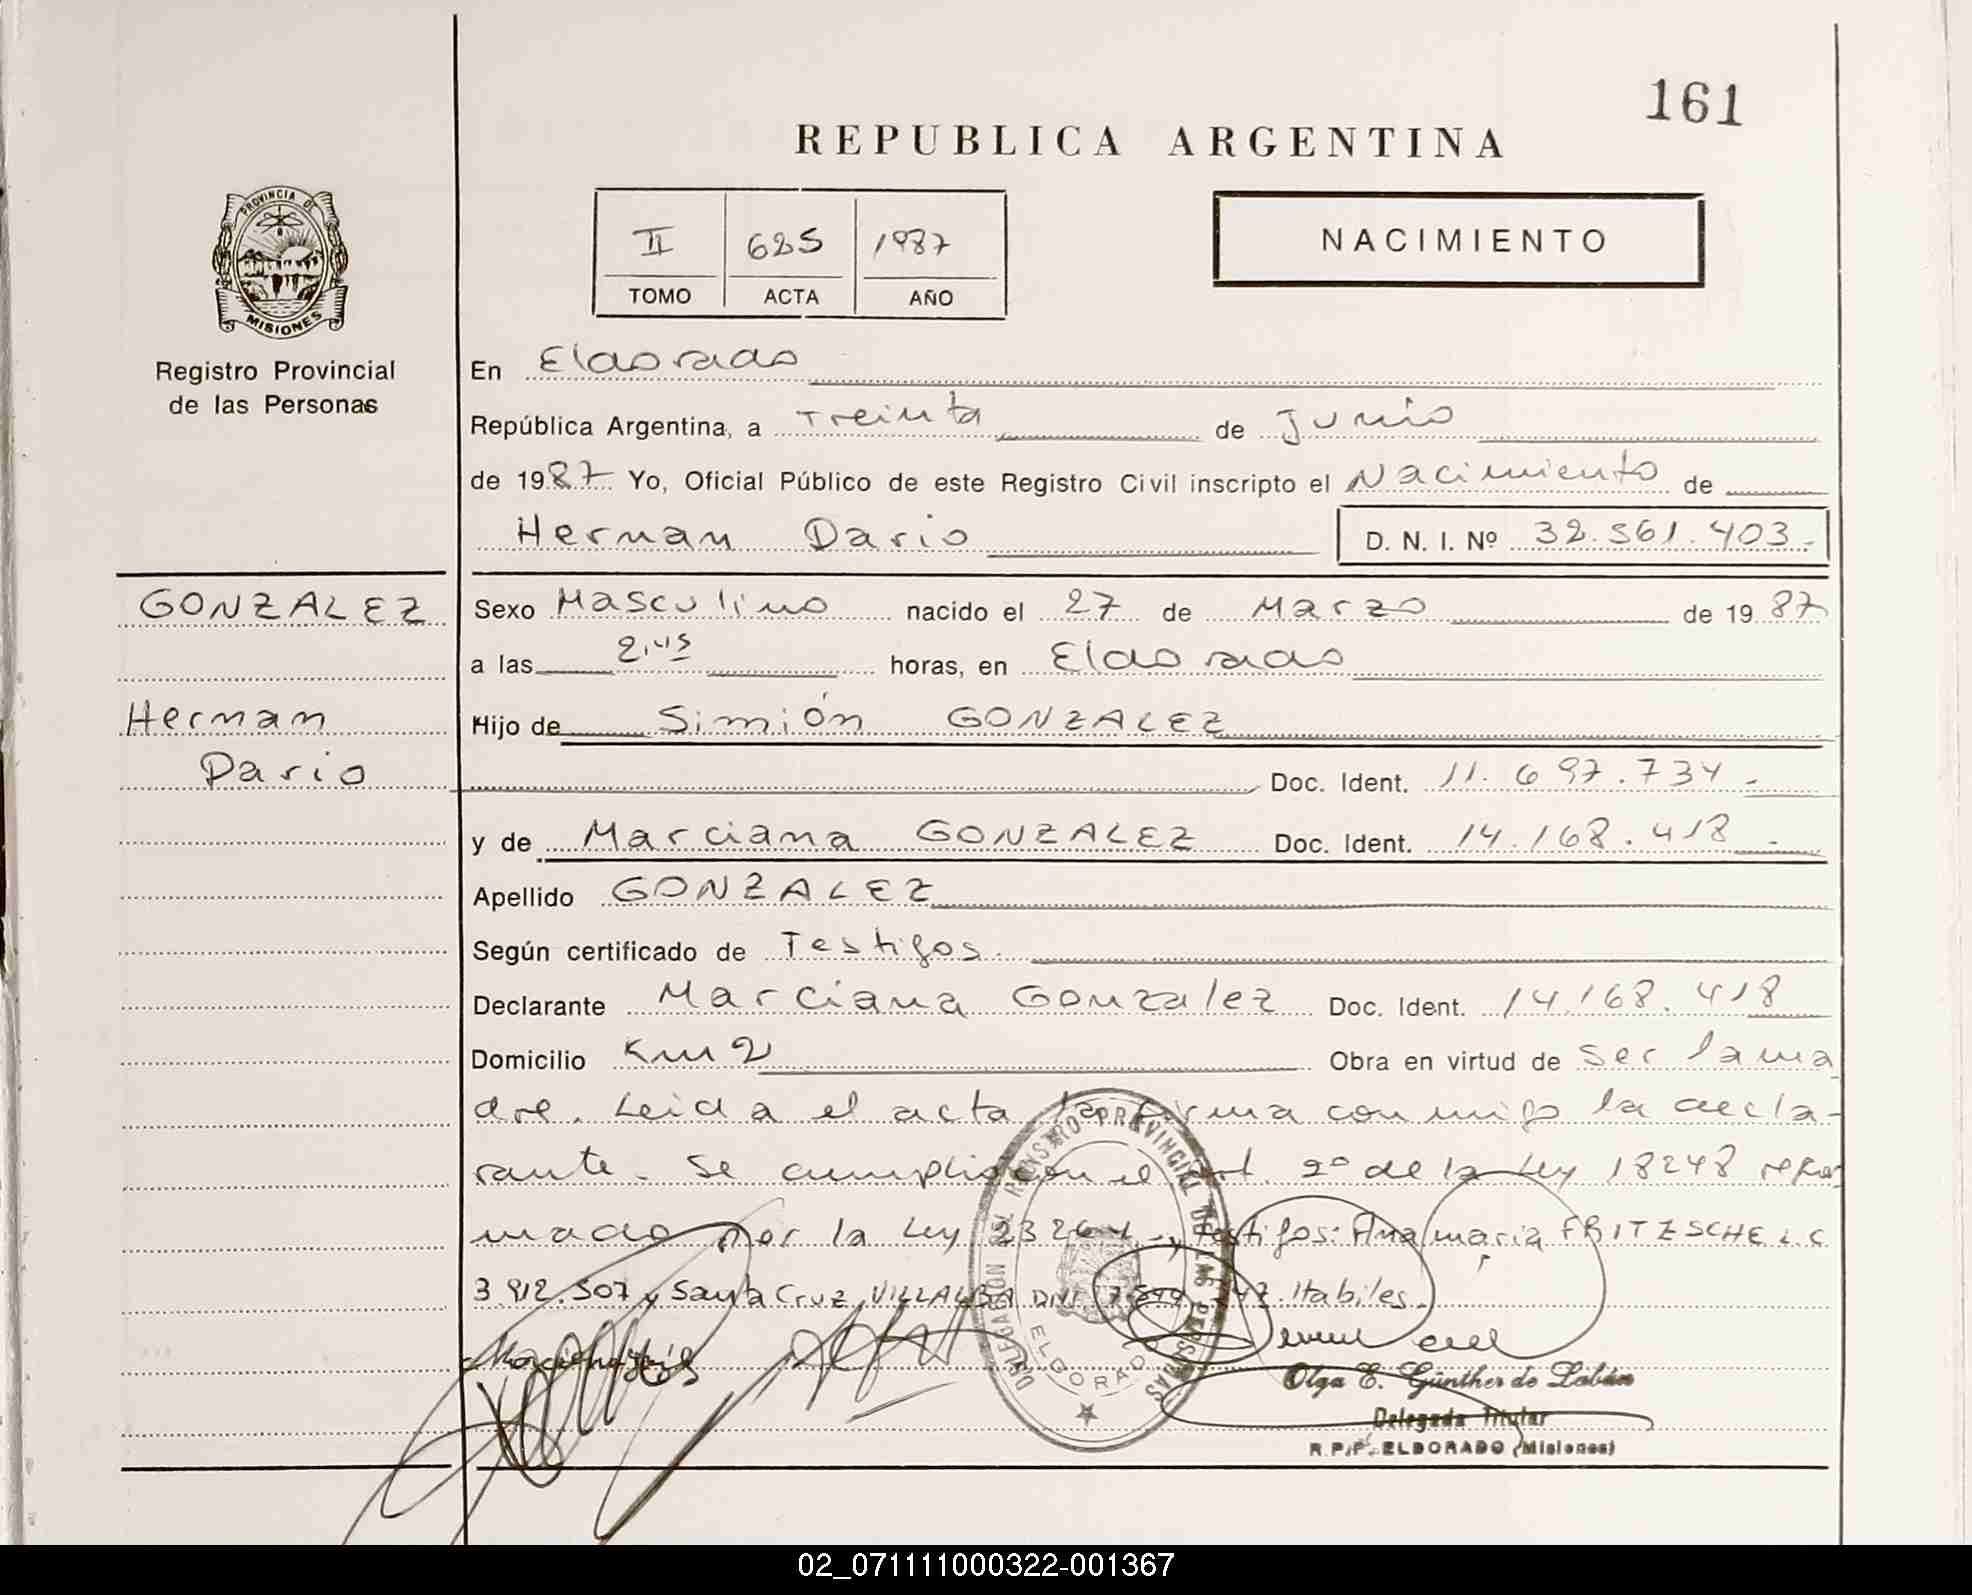 161
REPUBLICA ARGENTINA
PROVINCIA DE
MISIONES
II 625 1987
TOMO ACTA AÑO
NACIMIENTO
Registro Provincial
de las Personas
En Eldorado
República Argentina, a Treinta de Junio
de 1987 Yo, Oficial Público de este Registro Civil inscripto el Nacimiento de
Hernan Dario D. N. I. Nº 32.561.403.-
GONZALEZ
Hernan
Dario
Sexo Masculino nacido el 27 de Marzo de 1987
a las 2,45 horas, en Eldorado
Hijo de Simión GONZALEZ
Doc. Ident. 11.697.734.-
y de Marciana GONZALEZ Doc. Ident. 14.168.418.-
Apellido GONZALEZ
Según certificado de Testigos.
Declarante Marciana Gonzalez Doc. Ident. 14.168.418
Domicilio Km 2 Obra en virtud de ser la ma
dre. Leida el acta la firma conmigo la decla-
rante. Se cumplio con el art. 2º de la Ley 18248 refor
mado por la Ley 23264.- Testigos: Ana maria FRITZSCHE L.C.
3.912.507 y Santa Cruz VILLALBA DNI Habiles.
DELEGACION DEL REGISTRO PROVINCIAL DE LAS PERSONAS
ELDORADO
Olga E. Günther de Labán
Delegada Titular
R.P.P. ELDORADO (Misiones)
02_071111000322-001367